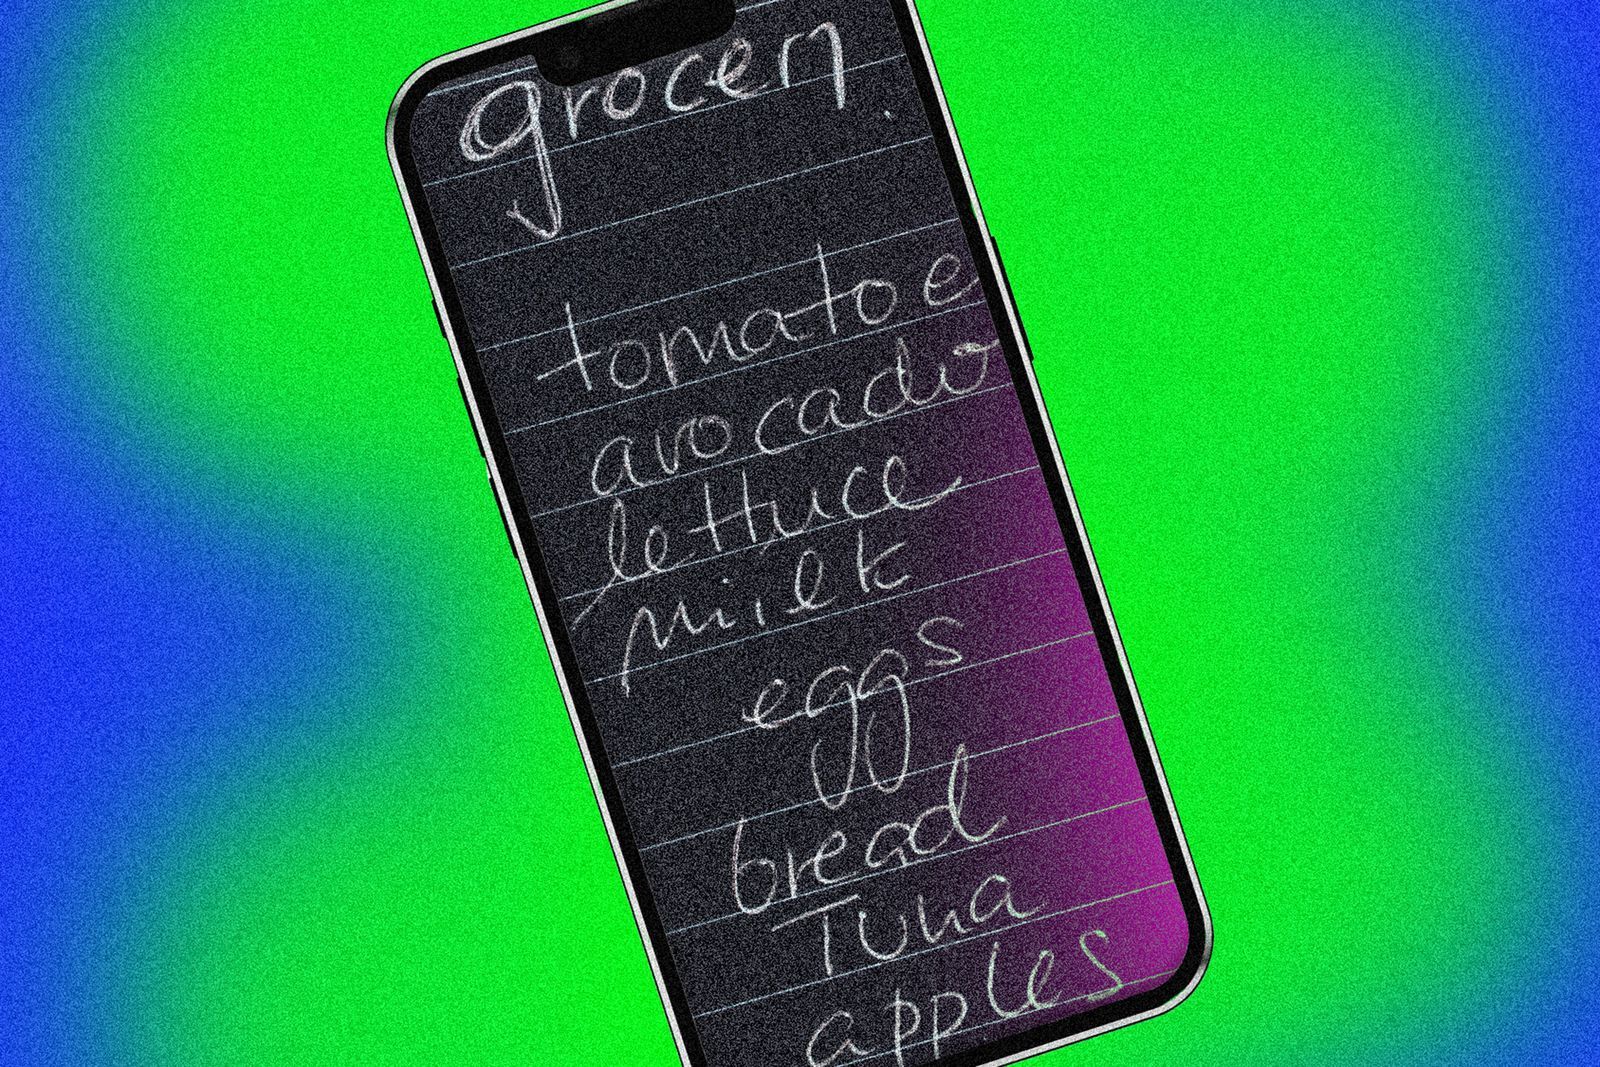 grocery
tomatoe
avocado
lettuce
milk
eggs
bread
Tuna
apples